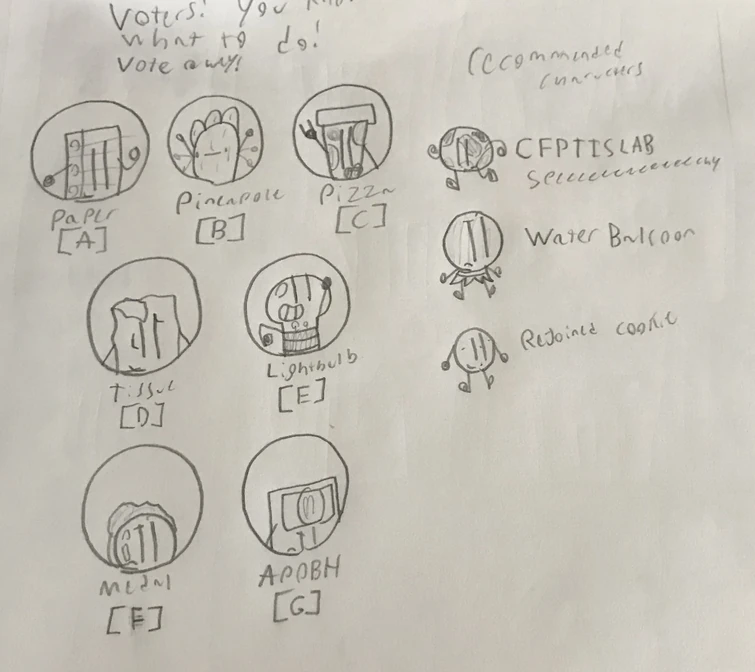 Voters! You
what to do!
Vote away!
Recommended
characters
Paper
[A]
Pineapple
[B]
Pizza
[C]
CFPTISLAB
Water Balloon
Rejoined cookie
Tissue
[D]
Lightbulb
[E]
Medal
[F]
APOBH
[G]